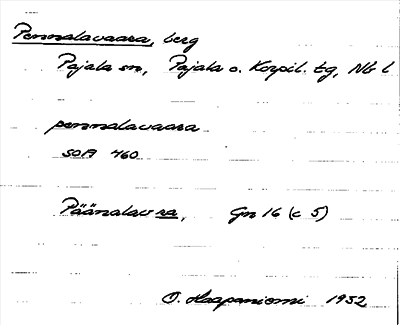 Pennalavaara, berg
Pajala sn, Pajala o. Korpil. tg, Nb l
pennalavaara
SOA 460
Päänalav ra, Gn 16 (c 5)
O. Haapaniemi 1932